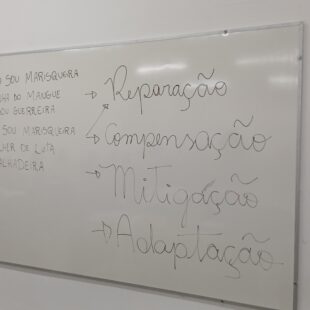 SOU MARISQUEIRA
DO MANGUE
GUERREIRA
SOU MARISQUEIRA
DE LUTA
→ Reparação
→ Compensação
→ Mitigação
→ Adaptação